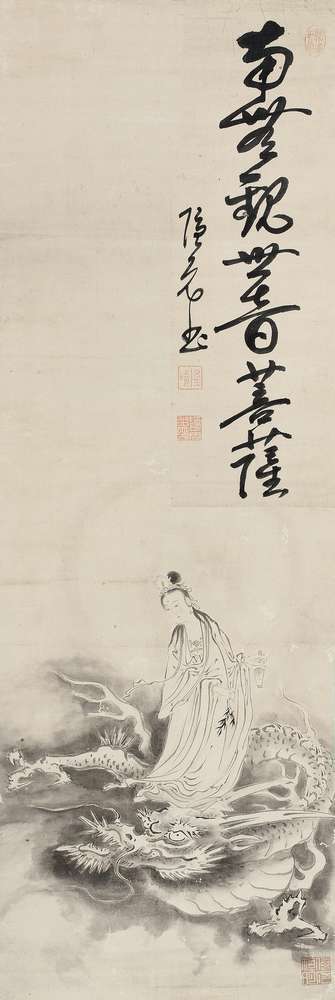 南無観世音菩薩
隱元書